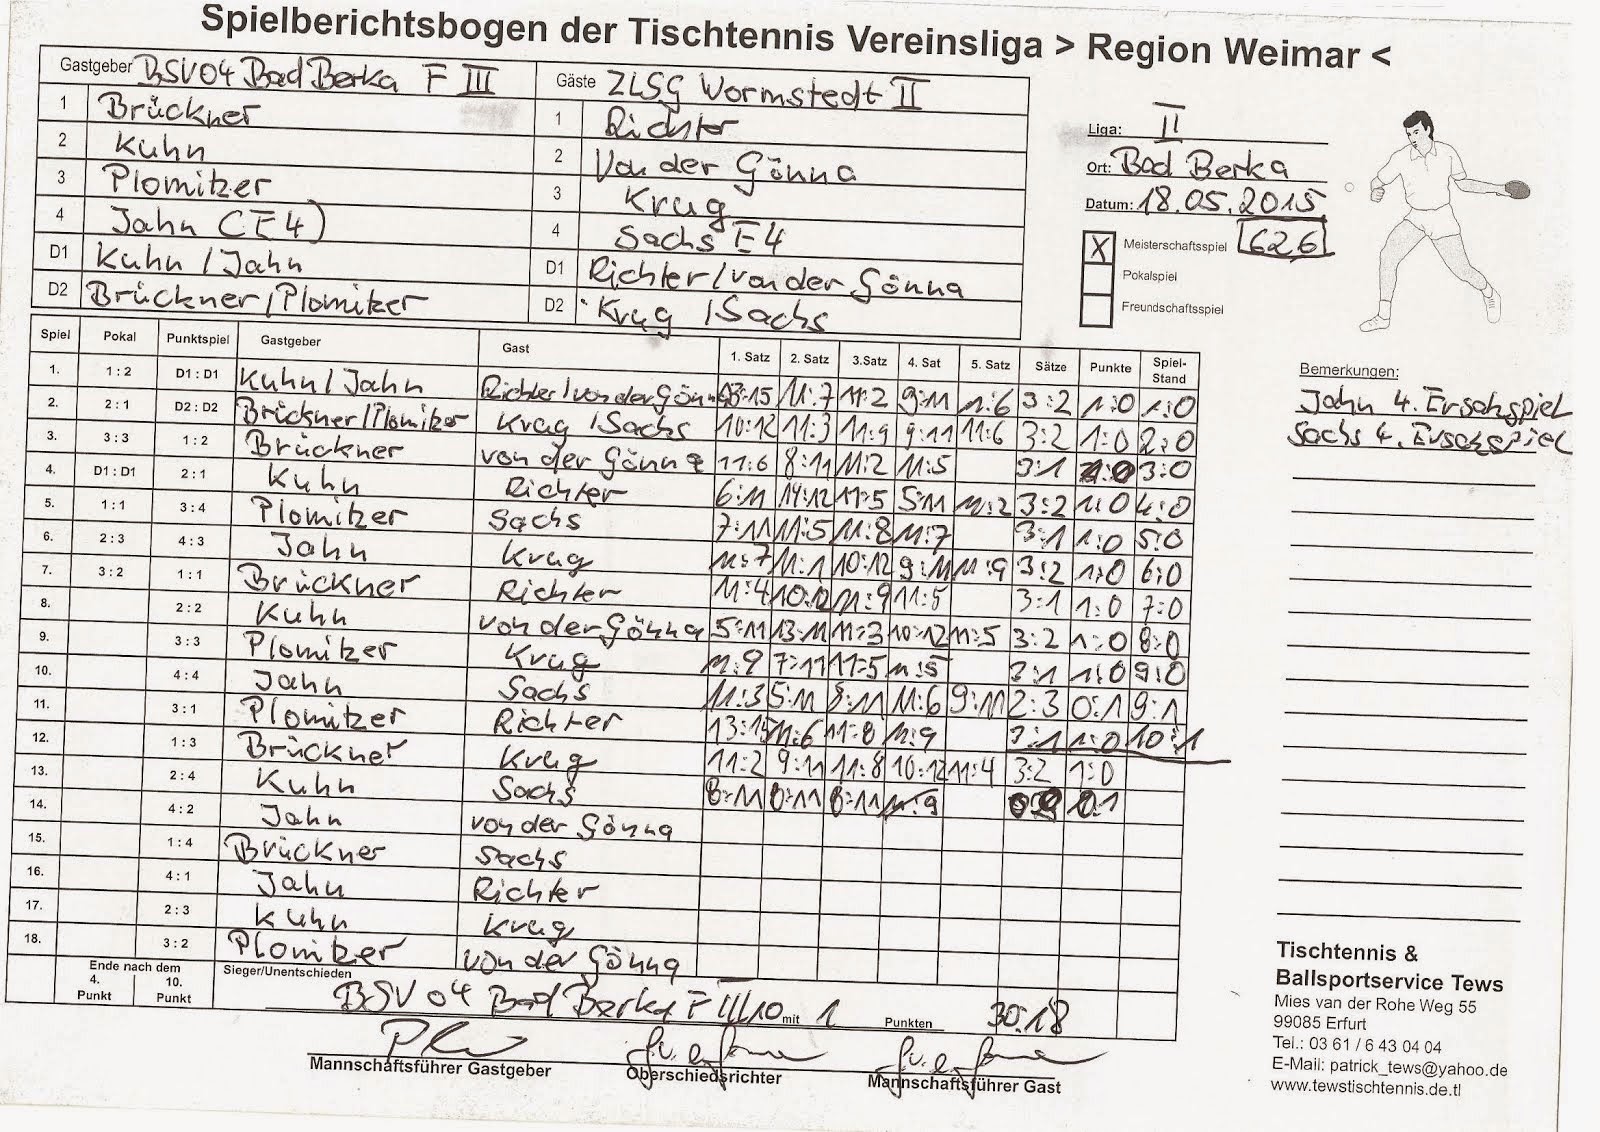 Spielberichtsbogen der Tischtennis Vereinsliga > Region Weimar <
Gastgeber BSV04 Bad Berka F III Gäste ZLSG Wormstedt II
1 Brückner 1 Richter
2 Kuhn 2 Von der Gönna
3 Plomitzer 3 Krug
4 Jahn (E4) 4 Sachs E4
D1 Kuhn/Jahn D1 Richter/von der Gönna
D2 Brückner/Plomitzer D2 Krug/Sachs
Liga: II
Ort: Bad Berka
Datum: 18.05.2015
X Meisterschaftsspiel 626
Pokalspiel
Freundschaftsspiel
Spiel Pokal Punktspiel Gastgeber Gast 1. Satz 2. Satz 3.Satz 4. Sat 5. Satz Sätze Punkte Spiel-Stand
1. 1:2 D1:D1 Kuhn/Jahn Richter/von der Gönna 13:15 11:7 11:2 9:11 11:6 3:2 1:0 1:0
2. 2:1 D2:D2 Brückner/Plomitzer Krug/Sachs 10:12 11:3 11:9 9:11 11:6 3:2 1:0 2:0
3. 3:3 1:2 Brückner von der Gönna 11:6 8:11 11:2 11:5 3:1 1:0 3:0
4. D1:D1 2:1 Kuhn Richter 6:11 14:12 11:5 5:11 11:2 3:2 1:0 4:0
5. 1:1 3:4 Plomitzer Sachs 7:11 11:5 11:8 11:7 3:1 1:0 5:0
6. 2:3 4:3 Jahn Krug 11:7 11:1 10:12 9:11 11:9 3:2 1:0 6:0
7. 3:2 1:1 Brückner Richter 11:4 10:12 11:9 11:5 3:1 1:0 7:0
8. 2:2 Kuhn von der Gönna 5:11 13:11 11:3 10:12 11:5 3:2 1:0 8:0
9. 3:3 Plomitzer Krug 11:9 7:11 11:5 11:5 3:1 1:0 9:0
10. 4:4 Jahn Sachs 11:3 5:11 8:11 11:6 9:11 2:3 0:1 9:1
11. 3:1 Plomitzer Richter 13:15 11:6 11:8 11:9 3:1 1:0 10:1
12. 1:3 Brückner Krug 11:2 9:11 11:8 10:12 11:4 3:2 1:0
13. 2:4 Kuhn Sachs 8:11 8:11 8:11 11:9 0:1
14. 4:2 Jahn von der Gönna
15. 1:4 Brückner Sachs
16. 4:1 Jahn Richter
17. 2:3 Kuhn Krug
18. 3:2 Plomitzer von der Gönna
Ende nach dem Sieger/Unentschieden
4. Punkt 10. Punkt BSV 04 Bad Berka F III 10 mit 1 Punkten 30:18
Mannschaftsführer Gastgeber Oberschiedsrichter Mannschaftsführer Gast
Bemerkungen:
Jahn 4. Ersatzspiel
Sachs 4. Ersatzspiel
Tischtennis &
Ballsportservice Tews
Mies van der Rohe Weg 55
99085 Erfurt
Tel.: 03 61 / 6 43 04 04
E-Mail: patrick_tews@yahoo.de
www.tewstischtennis.de.tl